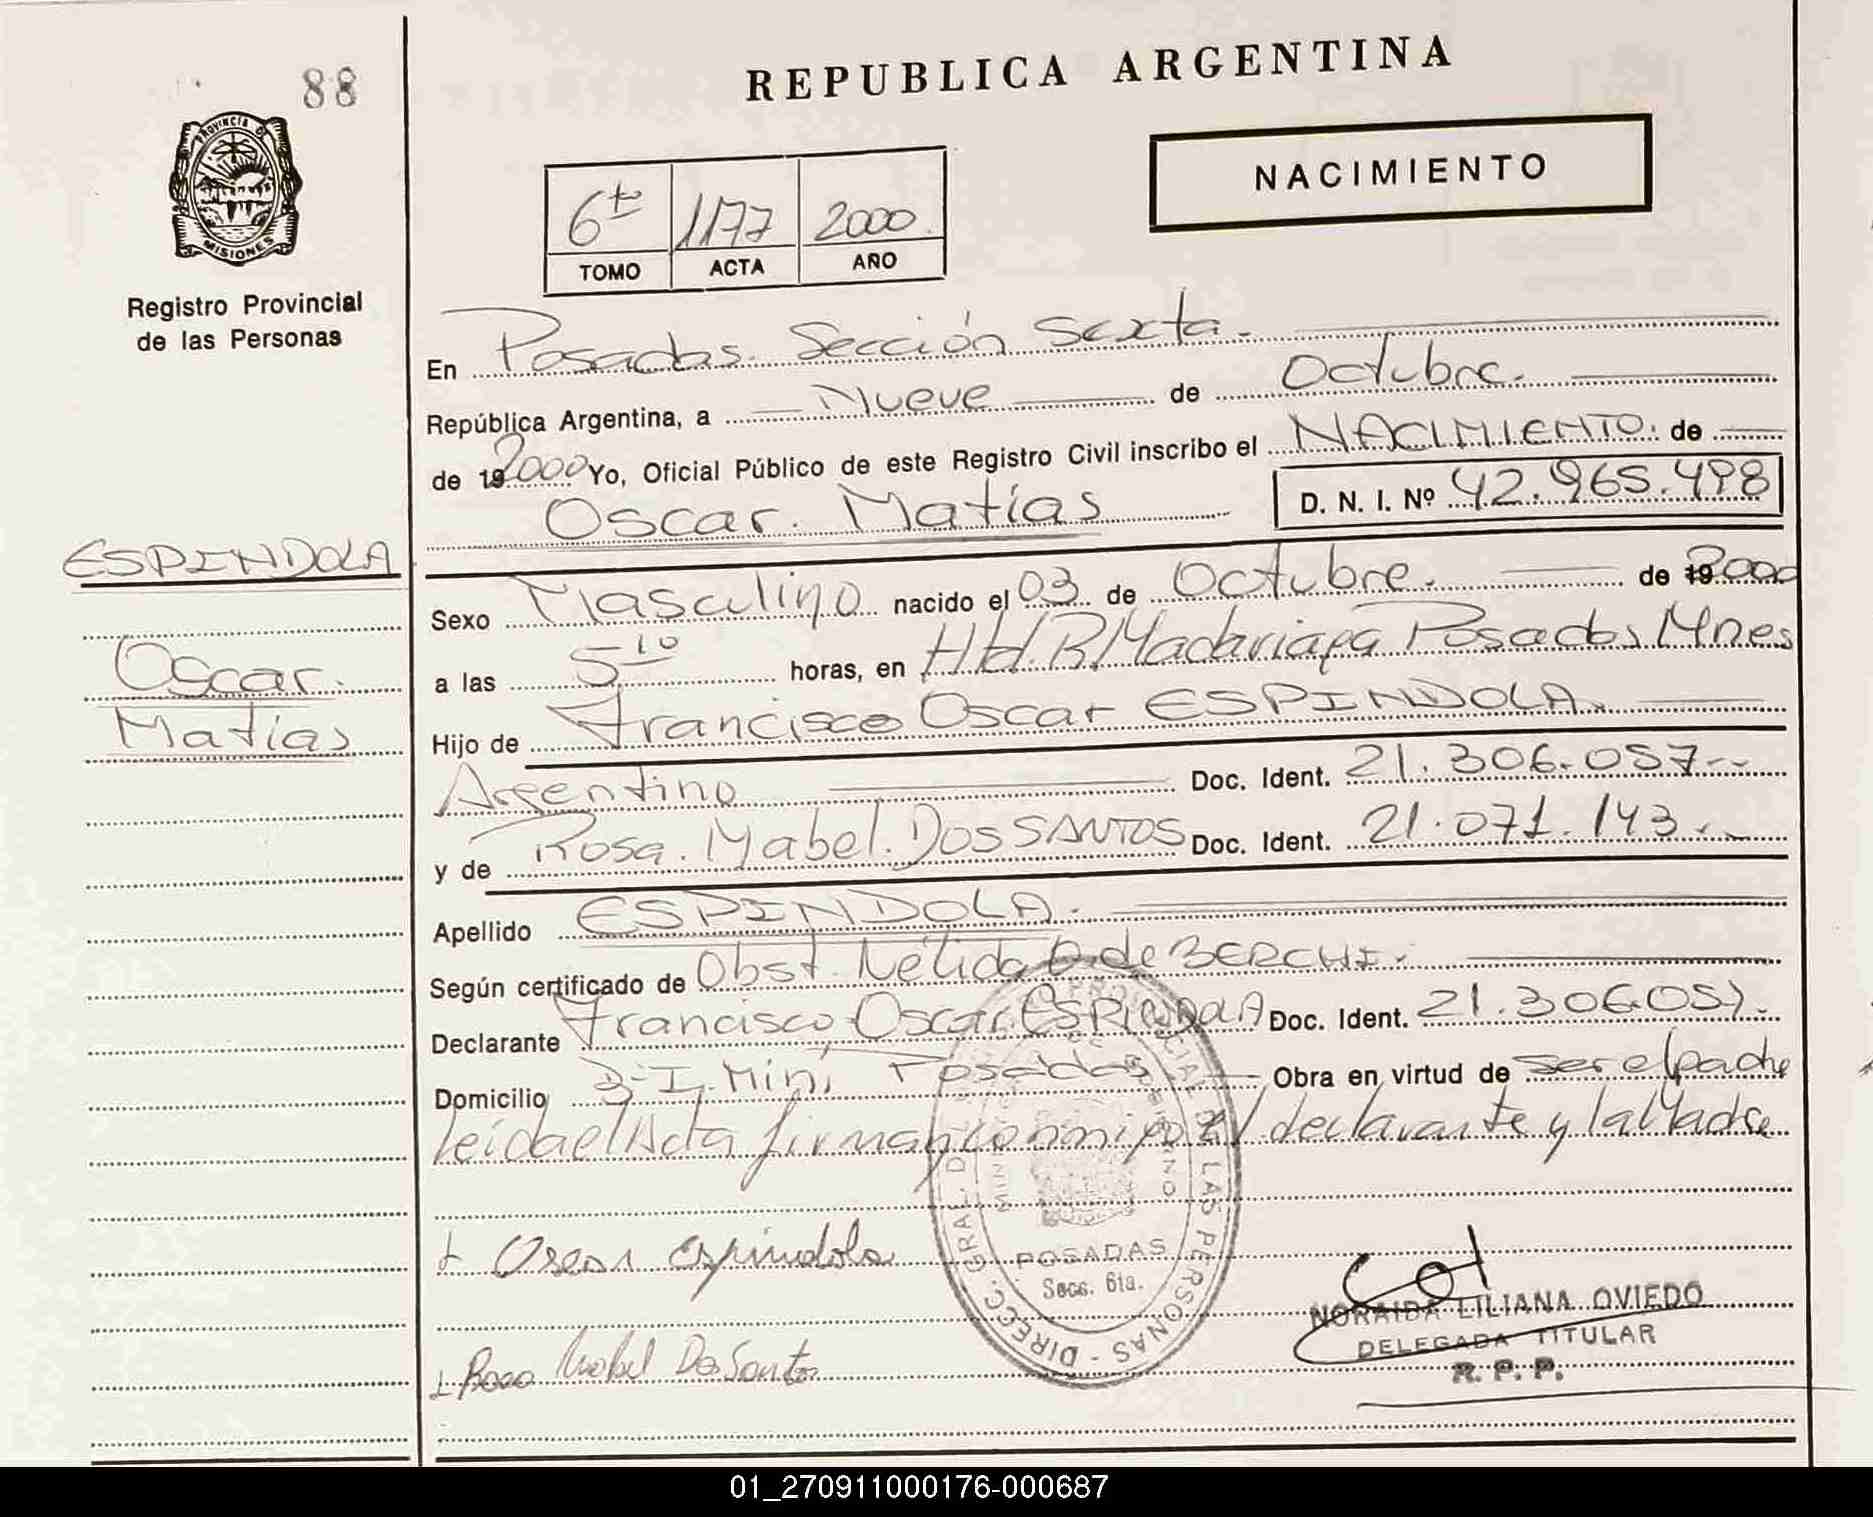 88
REPUBLICA ARGENTINA
NACIMIENTO
PROVINCIA DE
MISIONES
Registro Provincial
de las Personas
6to 1177 2000
TOMO ACTA AÑO
En Posadas. Sección Sexta.
República Argentina, a Nueve de Octubre.
de 192000 Yo, Oficial Público de este Registro Civil inscribo el NACIMIENTO. de
Oscar. Matías D. N. I. Nº 42.965.498
ESPINDOLA
Oscar.
Matías
Sexo Masculino nacido el 03 de Octubre. de 192000
a las 5 10 horas, en Htal. R. Madariaga Posadas Mnes
Hijo de Francisco Oscar ESPINDOLA.
Argentino Doc. Ident. 21.306.057
y de Rosa. Mabel. DOS SANTOS Doc. Ident. 21.071.143
Apellido ESPINDOLA.
Según certificado de Obst. Nélida de BERCHI.
Declarante Francisco Oscar ESPINDOLA Doc. Ident. 21.306.057.
Domicilio Posadas Obra en virtud de ser el padre
leída el Acta firman conmigo el declarante y la Madre
Oscar Espindola
Rosa Mabel Dos Santos
DIRECC. GRAL. DE LAS PERSONAS
POSADAS
Secc. 6ta.
NORAIDA LILIANA OVIEDO
DELEGADA TITULAR
R. P. P.
01_270911000176-000687